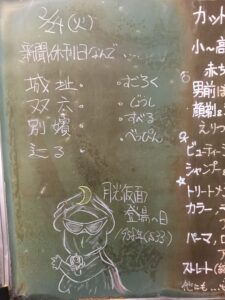 2/24(火)
新聞休刊日なんで…
城址・ ・すごろく
双六・ ・じょうし
別嬪・ ・すべる
辷る・ ・べっぴん
月光仮面
登場の日
1958年(S.33)
カット
小〜高
赤ち
男前
顔剃&
えりつ
ビューティー
シャンプー&
トリートメン
カラー
パーマ
ストレート
他にも